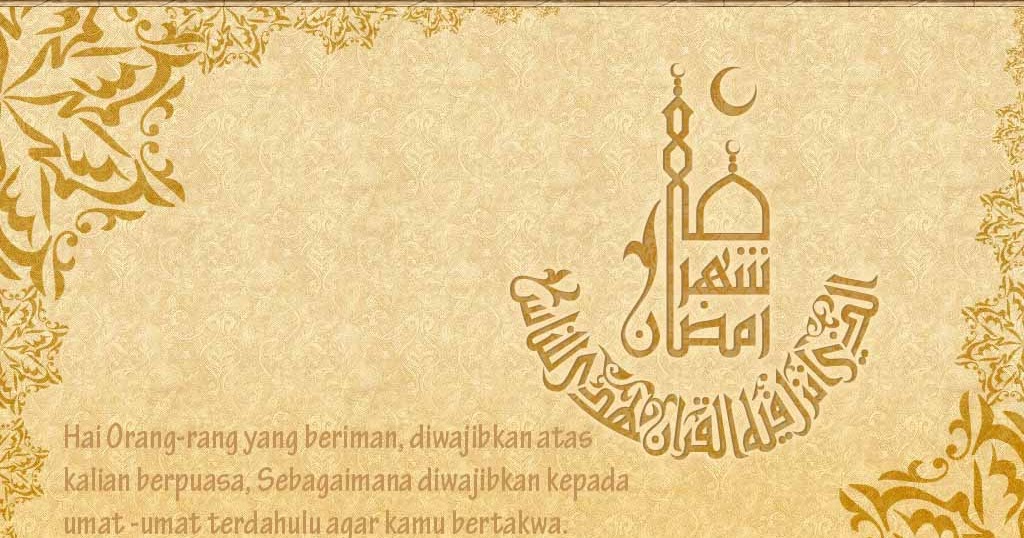 شهر
رمضان
الذي انزل فيه القرآن هدى للناس
Hai Orang-rang yang beriman, diwajibkan atas
kalian berpuasa, Sebagaimana diwajibkan kepada
umat -umat terdahulu agar kamu bertakwa.